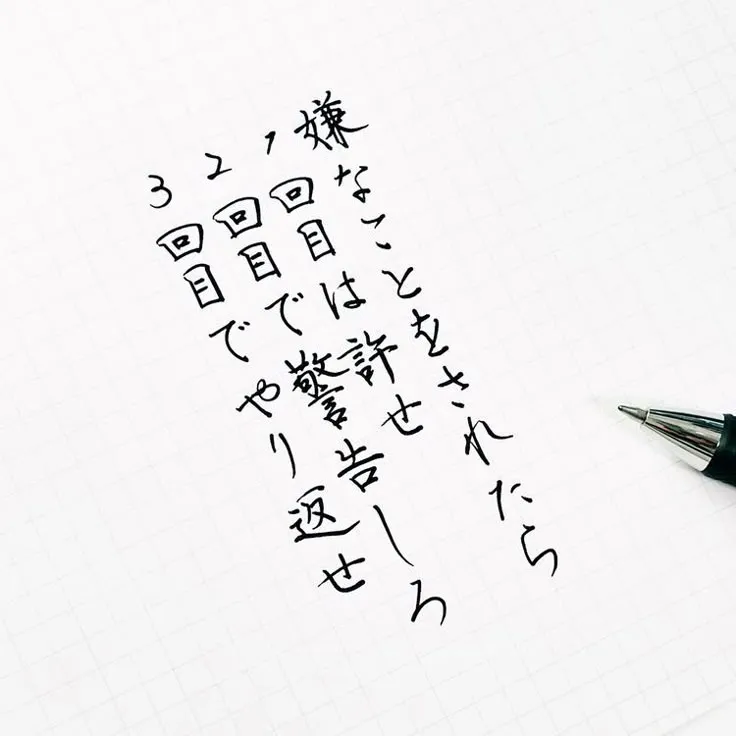 嫌なことをされたら
1回目は許せ
2回目で警告しろ
3回目でやり返せ